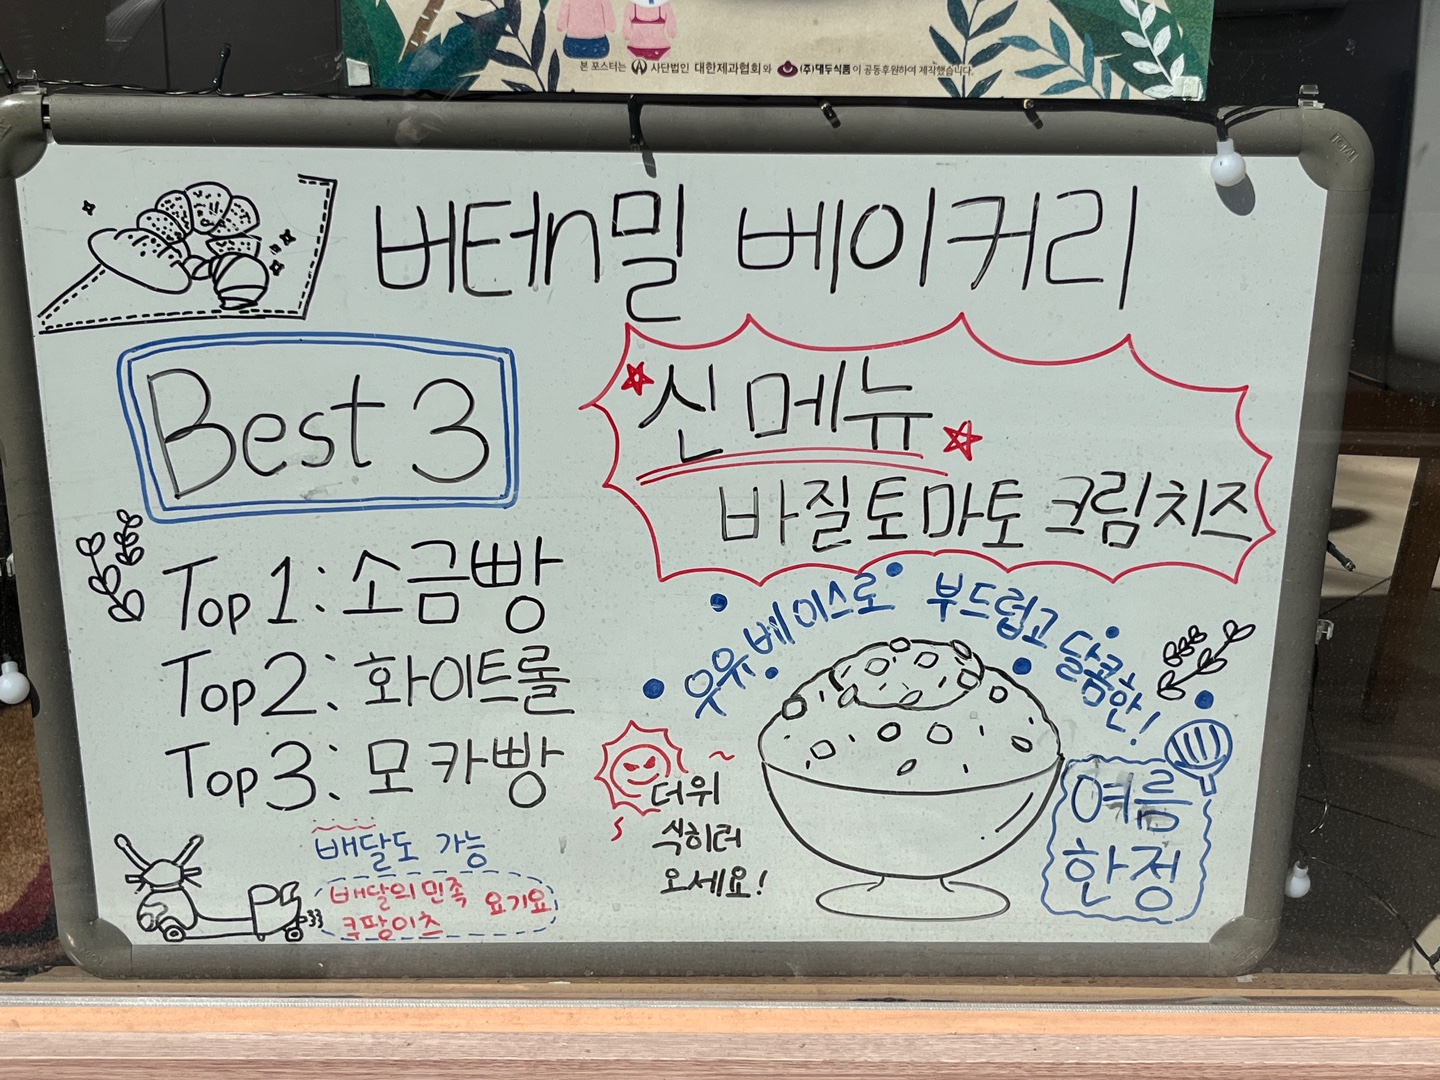 본 포스터는 사단법인 대한제과협회와 (주)대두식품이 공동후원하여 제작했습니다.
버터n밀 베이커리
Best 3
Top 1: 소금빵
Top 2: 화이트롤
Top 3: 모카빵
배달도 가능
배달의 민족 요기요
쿠팡이츠
신메뉴
바질토마토 크림치즈
우유베이스로 부드럽고 달콤한!
더위
식히러
오세요!
여름
한정